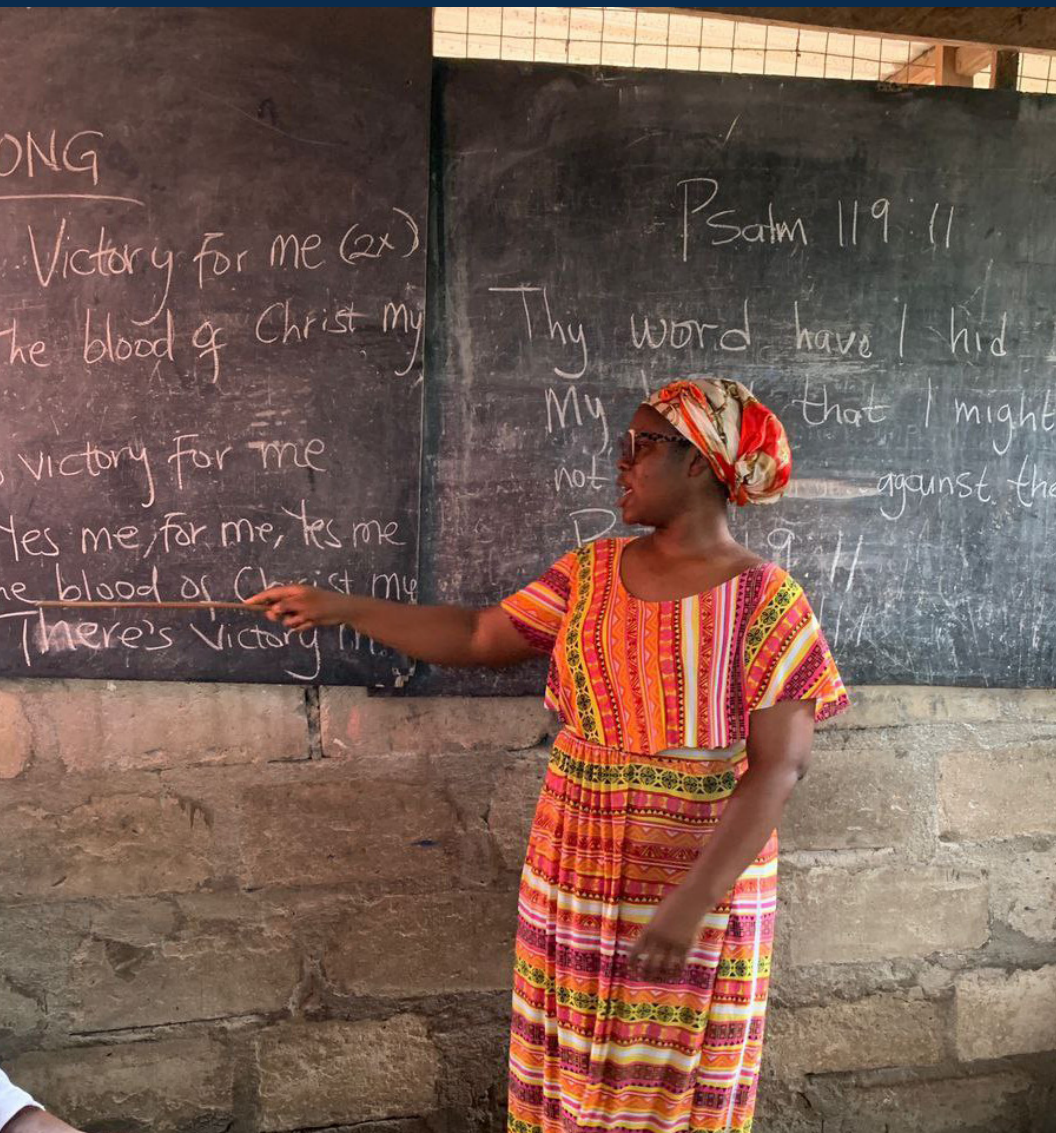 ONG
Victory for me (2x)
he blood of Christ my
victory for me
Yes me, for me, Yes me
he blood of Christ my
There's victory
Psalm 119:11
Thy word have I hid
My that I might
not against the
19:11